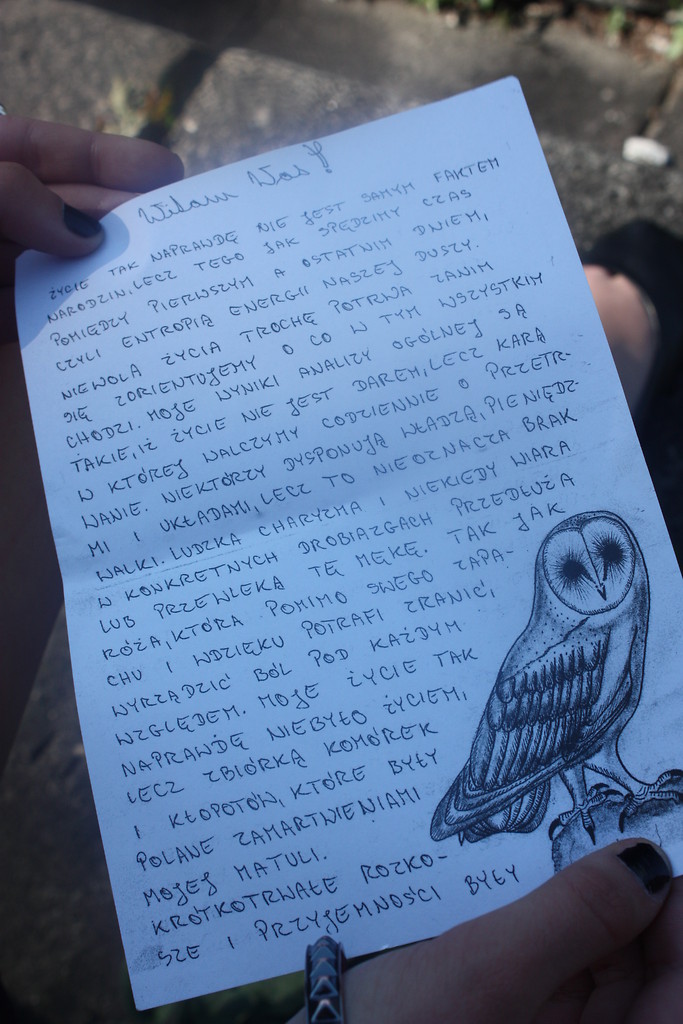 Witam Was!
ŻYCIE TAK NAPRAWDĘ NIE JEST SAMYM FAKTEM
NARODZIN, LECZ TEGO JAK SPĘDZIMY CZAS
POMIĘDZY PIERWSZYM A OSTATNIM DNIEM,
CZYLI ENTROPIĄ ENERGII NASZEJ DUSZY.
NIEWOLA ŻYCIA TROCHĘ POTRWA ZANIM
SIĘ ZORIENTUJEMY O CO W TYM WSZYSTKIM
CHODZI. MOJE WYNIKI ANALIZY OGÓLNEJ SĄ
TAKIE, IŻ ŻYCIE NIE JEST DAREM, LECZ KARĄ
W KTÓREJ WALCZYMY CODZIENNIE O PRZETR-
WANIE. NIEKTÓRZY DYSPONUJĄ WŁADZĄ, PIENIĘDZ-
MI I UKŁADAMI, LECZ TO NIEOZNACZA BRAK
WALKI. LUDZKA CHARYZMA I NIEKIEDY WIARA
W KONKRETNYCH DROBIAZGACH PRZEDŁUŻA
LUB PRZEWLEKA TĘ MĘKĘ. TAK JAK
RÓŻA, KTÓRA POMIMO SWEGO ZAPA-
CHU I WDZIĘKU POTRAFI ZRANIĆ,
WYRZĄDZIĆ BÓL POD KAŻDYM
WZGLĘDEM. MOJE ŻYCIE TAK
NAPRAWDĘ NIEBYŁO ŻYCIEM,
LECZ ZBIÓRKĄ KOMÓREK
I KŁOPOTÓW, KTÓRE BYŁY
POLANE ZAMARTWIENIAMI
MOJEJ MATULI.
KRÓTKOTRWAŁE ROZKO-
SZE I PRZYJEMNOŚCI BYŁY